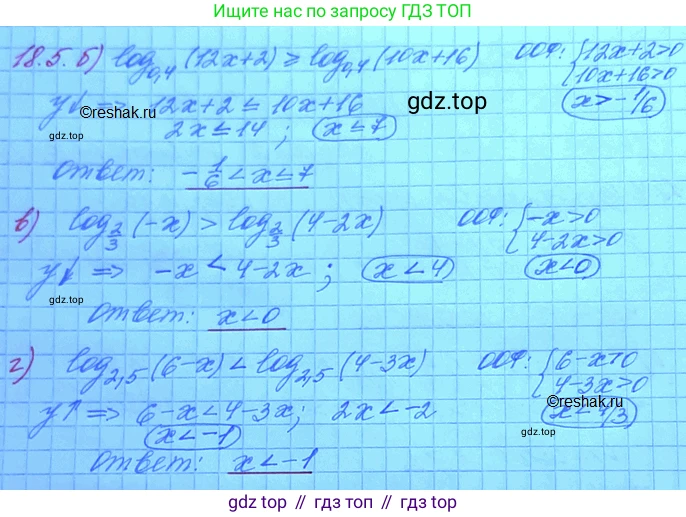 Ищите нас по запросу ГДЗ ТОП
18.5. б) log₀,₄(12x+2) ≥ log₀,₄(10x+16) ООФ: {12x+2>0
10x+16>0
y↓ => 12x+2 ≤ 10x+16 gdz.top x>-1/6
©reshak.ru
gdz.top 2x ≤ 14 ; x ≤ 7
ответ: -1/6 < x ≤ 7
в) log₂/₃(-x) > log₂/₃(4-2x) ООФ: {-x>0
4-2x>0
y↓ => -x < 4-2x ; x < 4 x<0
gdz.top
ответ: x<0
г) log₂,₅(6-x) < log₂,₅(4-3x) ООФ: {6-x>0
4-3x>0
©reshak.ru
y↑ => 6-x < 4-3x; 2x < -2 x<4/3
x < -1 gdz.top
ответ: x < -1
gdz top // гдз топ // gdz top